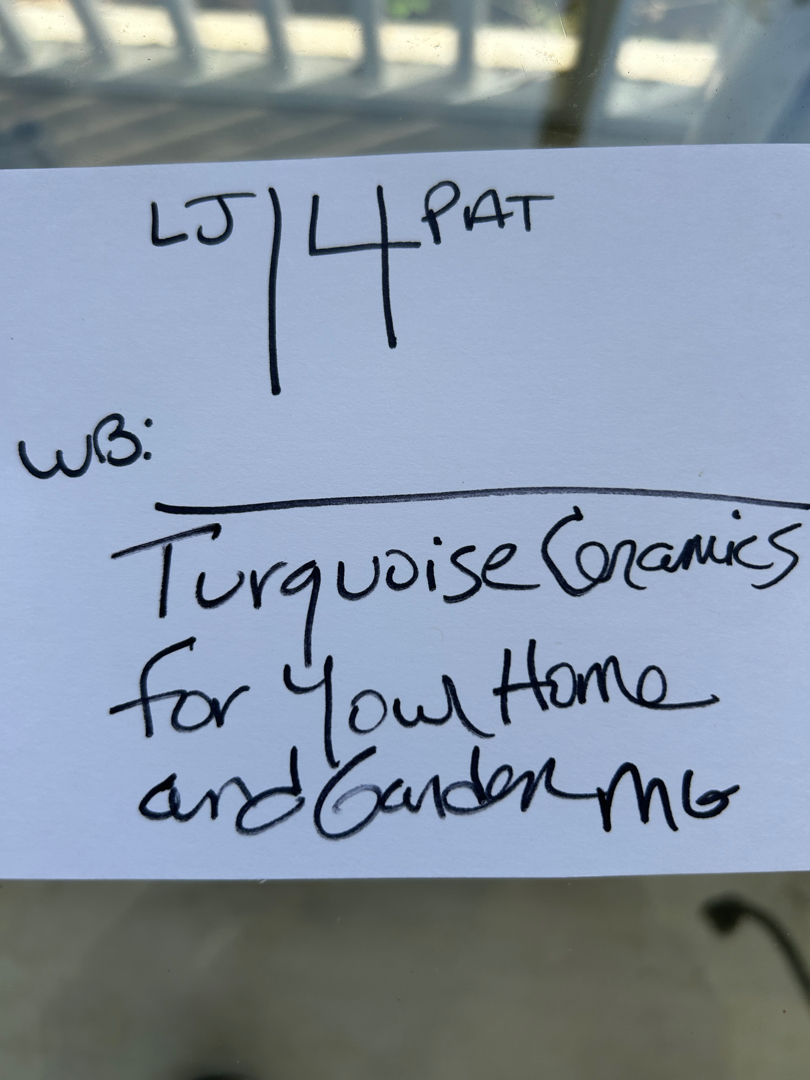 LJ 14 PAT
WB:
Turquoise Ceramics
for Your Home
and Garden MG